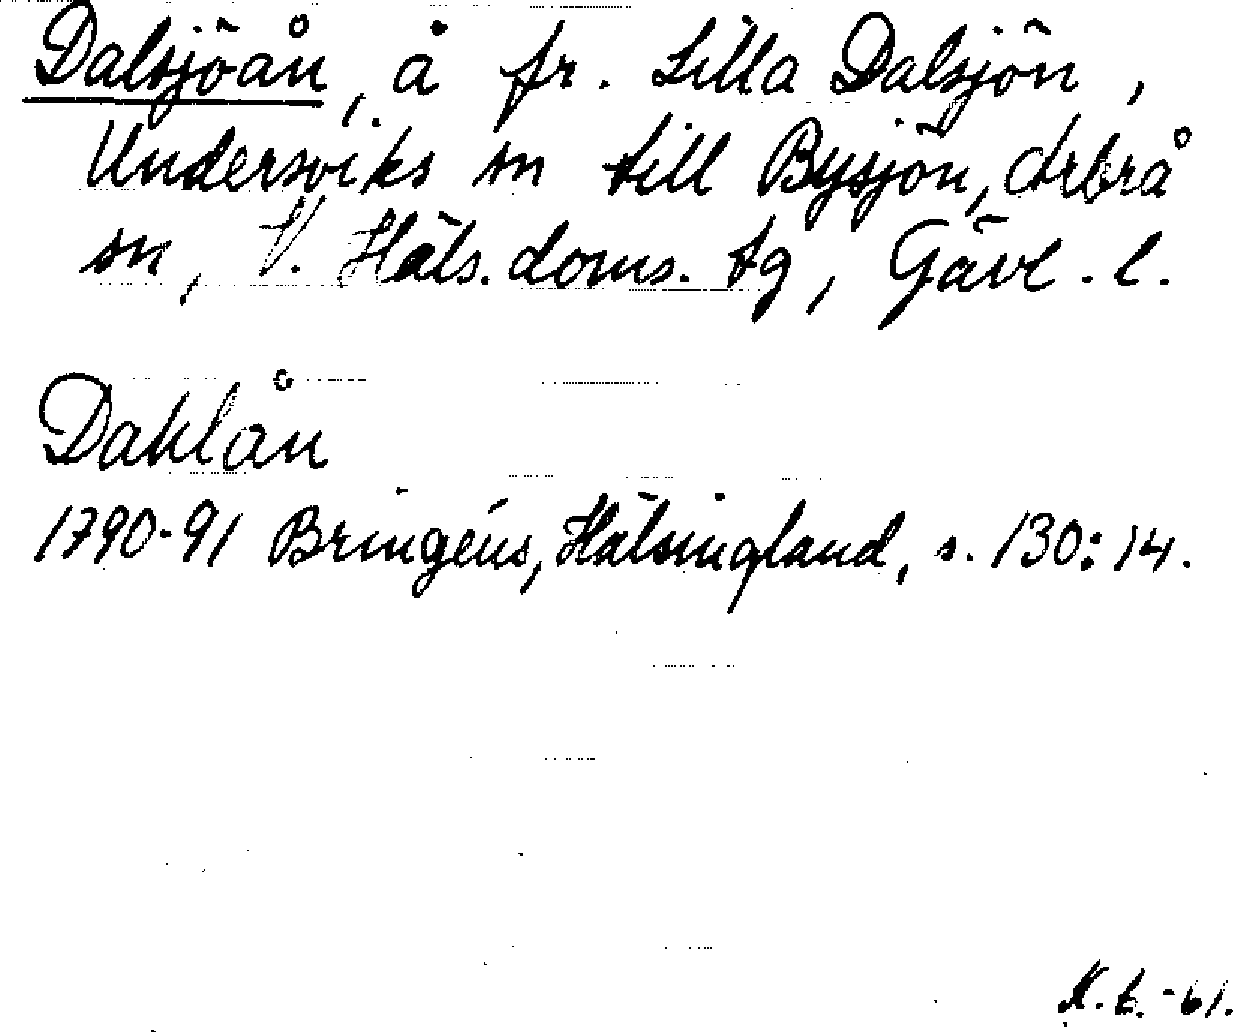 Dalsjöån, å fr. Lilla Dalsjön,
Undersviks sn till Bysjön, Arbrå
sn, V. Häls. doms. tg, Gävl. l.
Dahlån
1790-91 Bringéus, Hälsingland, s. 130:14.